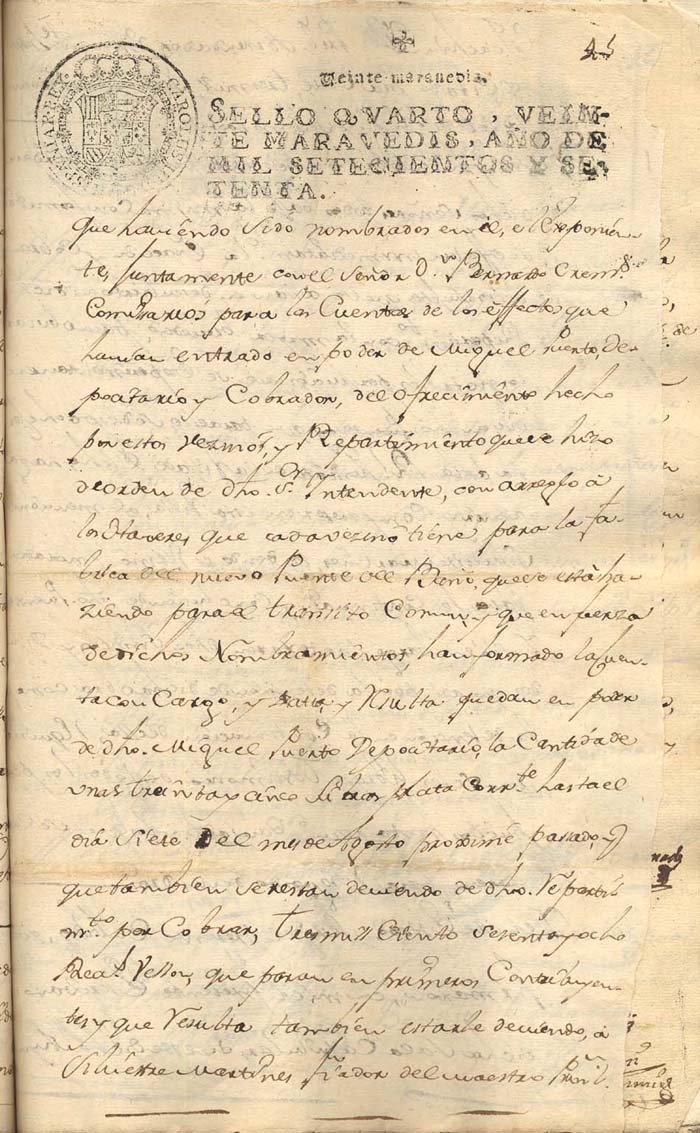 45
Veinte maravedis.
HISPANIAR.REX CAROLUS
SELLO QVARTO, VEIN-
TE MARAVEDIS, AÑO DE
MIL SETECIENTOS Y SE-
TENTA.
que haviendo sido nombrados en el, el Exponien-
te, Juntamente con el Señor D.n Bernardo
Comisarios para las Cuentas de los effectos que
havian entrado en poder de Miguel Puerto, De-
pocitario y Cobrador, del ofrecimiento hecho
por estos vezinos, y Repartimiento que se hizo
de orden de dho. Sr. Intendente, con arreglo à
los Haveres que cada vezino tiene para la fa-
brica del nuevo Puente del que se està ha-
ziendo para el transito Comun, y que en fuerza
de dichos Nombramientos, han formado la Cuen-
ta con Cargo, y Data y Resulta quedan en poder
de dho. Miguel Puerto Depocitario, la Cantidad de
unas treinta y cinco Libras plata Corr.te hasta el
dia siete del mes de Agosto proxime passado, y
que tambien se restan deviendo de dho. Reparti-
m.to por Cobrar, tres mill Ciento Setenta y ocho
Reas.s Vellon, que paran en primeros Contribuyen-
tes y que Resulta tambien estarle deviendo, à
Silvestre Martines fiador del maestro